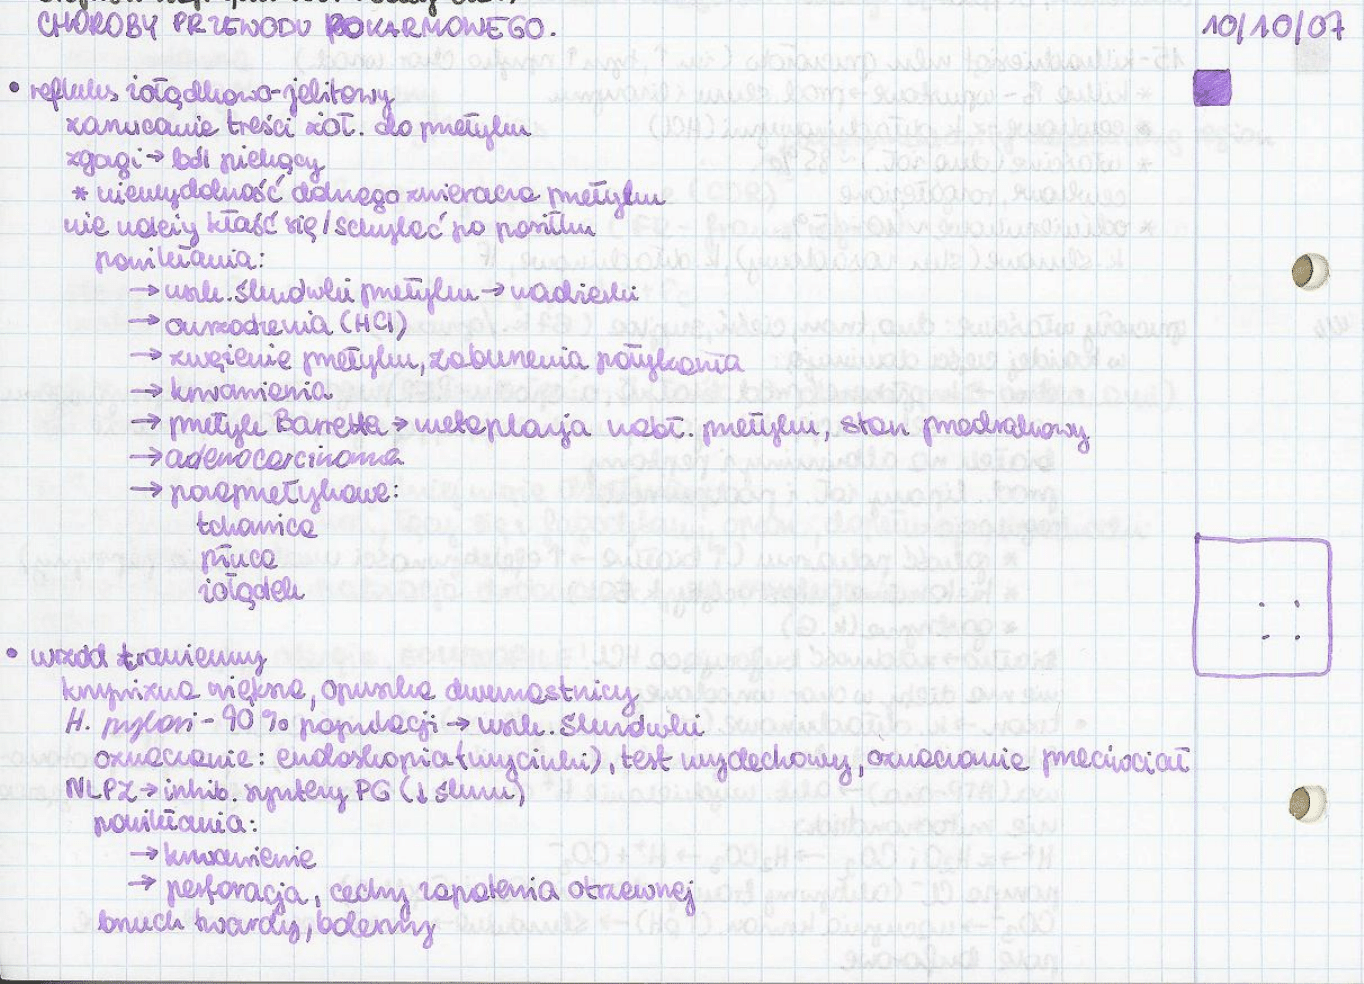 CHOROBY PRZEWODU POKARMOWEGO.
10/10/07
• refluks żołądkowo-jelitowy
zarzucanie treści żoł. do przełyku
zgagi → ból piekący
* niewydolność dolnego zwieracza przełyku
nie należy kłaść się/schylać po posiłku
powikłania:
→ uszk. śluzówki przełyku → nadżerki
→ owrzodzenia (HCl)
→ zwężenie przełyku, zaburzenia połykania
→ krwawienia
→ przełyk Barretta → metaplazja nabł. przełyku, stan przedrakowy
→ adenocarcinoma
→ pozaprzełykowe:
tchawica
płuca
żołądek
• wrzód trawienny
krzywizna większa, opuszka dwunastnicy
H. pylori - 90% populacji → uszk. śluzówki
oznaczanie: endoskopia (wycinki), test wydechowy, oznaczanie przeciwciał
NLPZ → inhib. syntezy PG (↓ śluzu)
powikłania:
→ krwawienie
→ perforacja, cechy zapalenia otrzewnej
brzuch twardy, bolesny